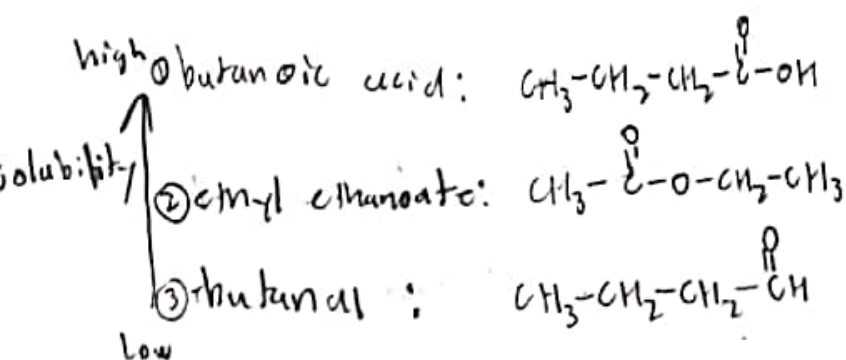 high ① butanoic acid: CH₃-CH₂-CH₂-C-OH
O
solubility ② ethyl ethanoate: CH₃-C-O-CH₂-CH₃
O
③ butanal : CH₃-CH₂-CH₂-CH
O
Low